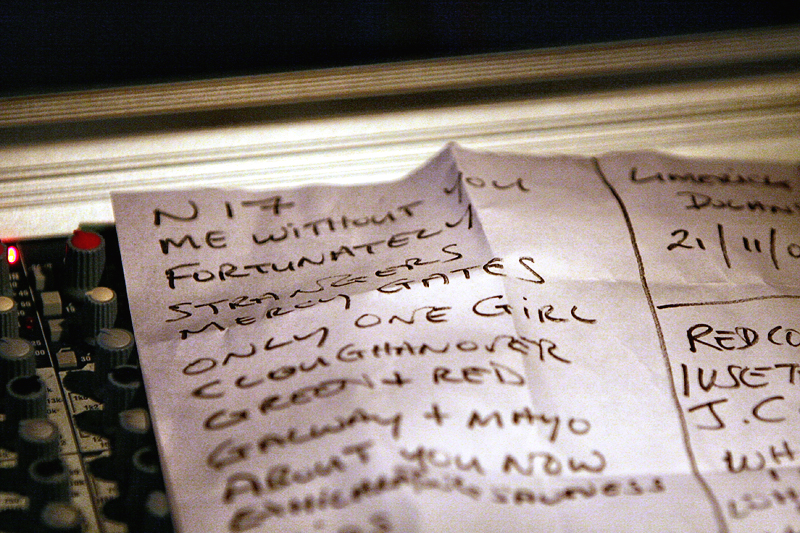 N17
ME WITHOUT YOU
FORTUNATELY
STRANGERS
MERCY GATES
ONLY ONE GIRL
CLOUGHANOVER
GREEN + RED
GALWAY + MAYO
ABOUT YOU NOW
EXHILARATING SADNESS
LIMERICK
DOLANS
21/11/0
REDCO
I USET
J.C
WH